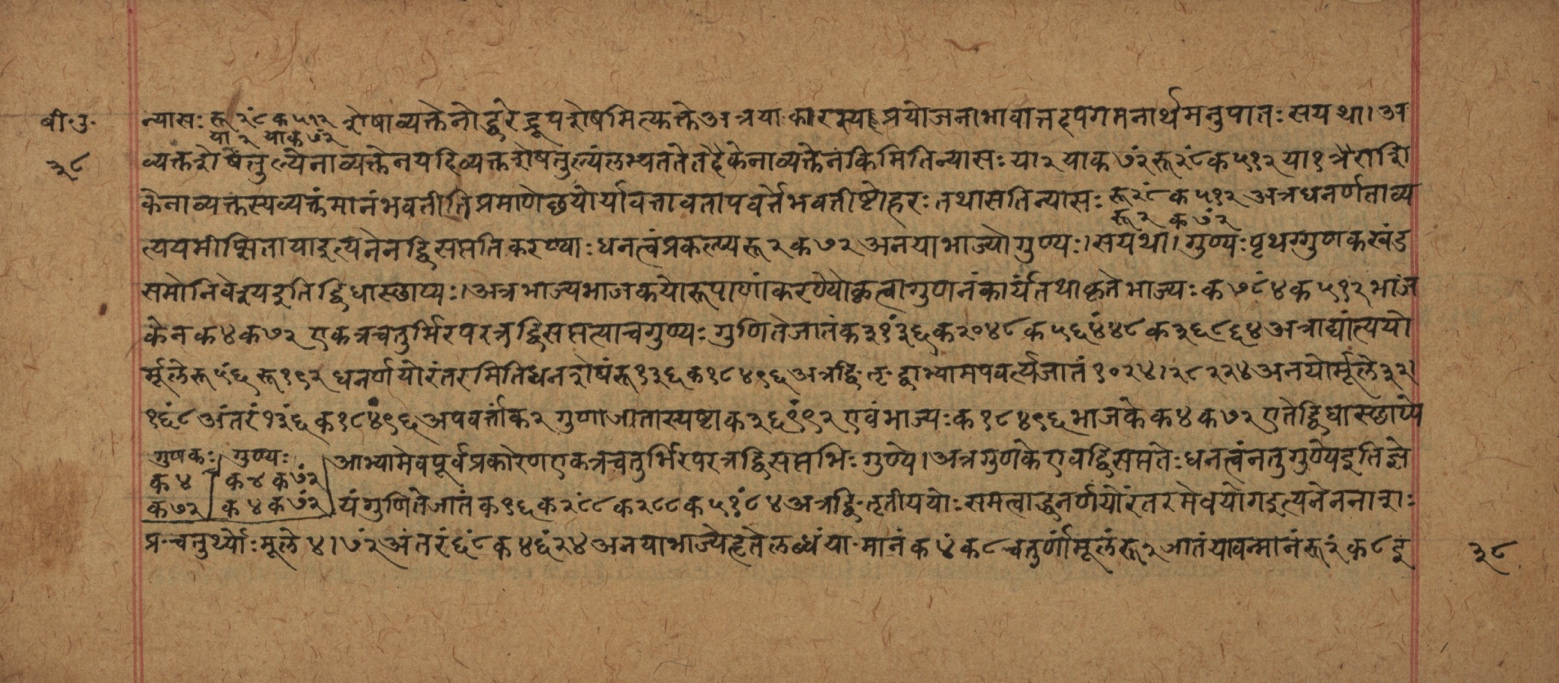 बी॰उ॰
३८
न्यासः रू २ं८ क ५१२ शेषाव्यक्तेनोद्धरेद्रूपशेषमित्युक्ते अत्र या कारस्य प्रयोजनाभावात्तदपगमनार्थमनुपातः स यथा। अ
या २ या क ७ं२
व्यक्तशेषतुल्येनाव्यक्तेन यदि व्यक्तशेषतुल्यं लभ्यत ते तदैकेनाव्यक्तेन किमिति न्यासः या २ या क ७ं२ रू २ं८ क ५१२ या १ त्रैराशि
केनाव्यक्तस्य व्यक्तं मानं भवतीति प्रमाणेछयोर्यावत्तावतापवर्त्ते भवतीष्टोहरः तथासति न्यासः रू २ं८ क ५१२ अत्र धनर्णताव्य
रू २ क ७ं२
त्ययमीप्सिताया इत्यनेन द्विसप्ततिकरण्याः धनत्वं प्रकल्प्य रू २ क ७२ अनया भाज्यो गुण्यः। स यथा। गुण्यः पृथग्गुणकखंड
समो निवेश्य इति द्विधा स्छाप्यः। अत्र भाज्यभाजकयो रूपाणां करण्यौ कृत्वा गुणनं कार्यं तथा कृते भाज्यः क ७८ं४ क ५१२ भाज
केन क ४ क ७२ एकत्र चतुर्भिरपरत्र द्विसप्तत्या च गुण्यः गुणिते जातं क ३१ं३६ क २०४८ क ५६४ं४८ क ३६८६४ अत्राद्यांत्ययो
र्मूले रू ५ं६ रू १९२ धनर्णयोरंतरमिति धनशेषं रू १३६ क १८४९६ अत्र द्वि॰तृ॰ द्वाभ्यामपवर्त्य जातं १०२४। २८२२४ अनयोर्मूले ३२।
१६ं८ अंतरं १३ं६ क १८४ं९६ अपवर्त्तांक २ गुणा जातास्पष्टा क ३६९ं९२ एवं भाज्यः क १८४९६ भाजके क ४ क ७२ एते द्विधा स्छाप्ये
गुणकः। गुण्यः। आभ्यामेव पूर्वप्रकारेण एकत्र चतुर्भिरपरत्र द्विसप्तभिः गुण्ये। अत्र गुणके एव द्विसप्ततेः धनत्वं न तु गुण्ये इति ज्ञे
क ४ क ४ क ७ं२
क ७२ क ४ क ७ं२ यं गुणिते जातं क १६ क २ं८८ क २८८ क ५१ं८४ अत्र द्वि॰तृतीययोः समत्वाद्धनर्णयोरंतरमेव योग इत्यनेन नाशः
प्र॰चतुर्थ्योः मूले ४। ७ं२ अंतरं ६ं८ क ४६ं२४ अनया भाज्ये हृते लब्धं या॰मानं क ४ं क ८ चतुर्णां मूलं रू २ जातं यावन्मानं रू २ं क ८ इ
३८